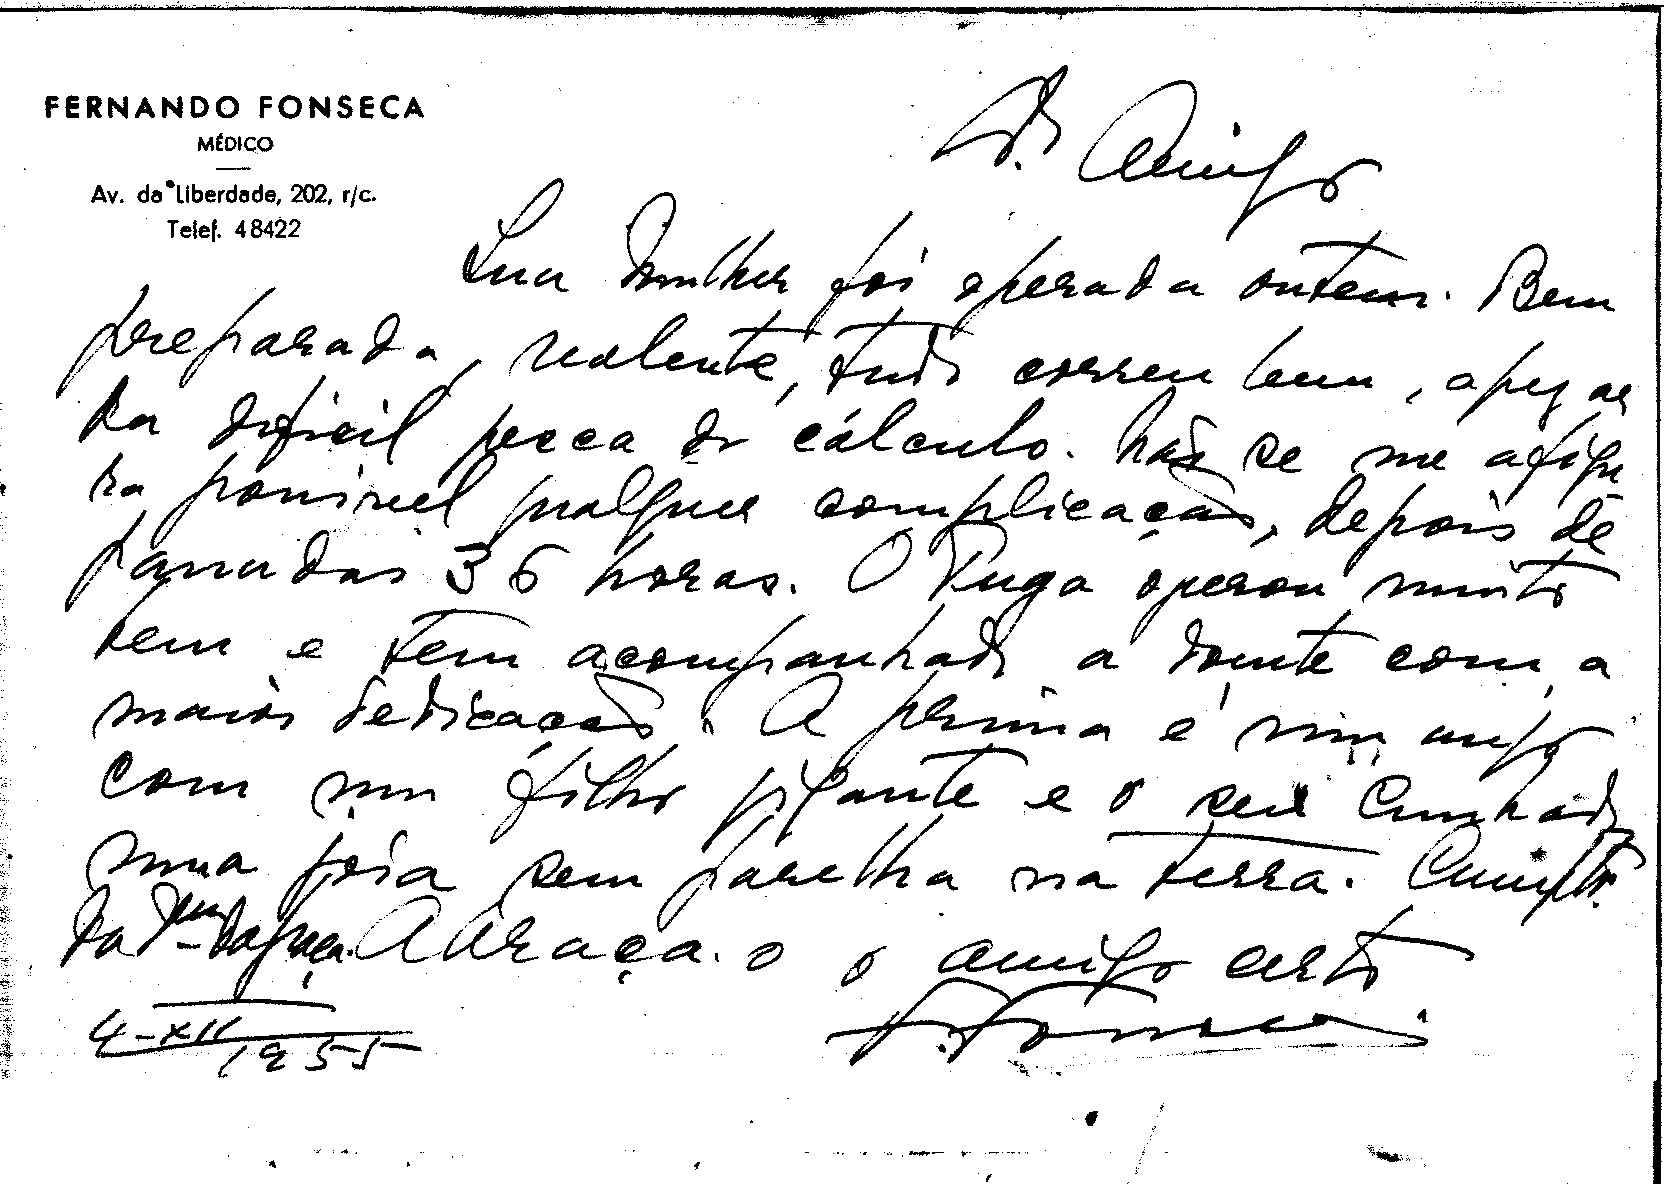 FERNANDO FONSECA
MÉDICO
Av. da Liberdade, 202, r/c.
Telef. 48422
Amigo
Sua Mulher foi operada ontem. Bem
preparada, valente, tudo correu bem, apezar
da dificil pesca do cálculo. Não se me afigu
ra possivel qualquer complicação, depois de
passadas 36 horas. O Puga operou muito
bem e tem acompanhado a doente com a
maior dedicação. A prima é um anjo
com um filho gigante e o seu Cunhado
uma joia sem parelha na terra. Cumpto.
da Abraça-o o amigo certo
4-XII
1955
F. Fonseca